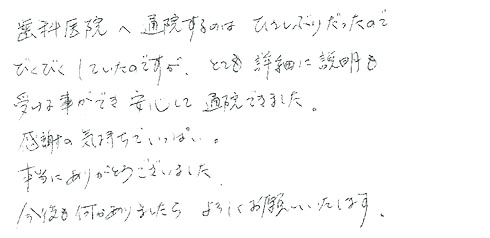 歯科医院へ通院するのはひさしぶりだったので
びくびくしていたのですが、とても詳細に説明も
受ける事ができ安心して通院できました。
感謝の気持ちでいっぱい。
本当にありがとうございました
今後も何かありましたらよろしくお願いいたします。